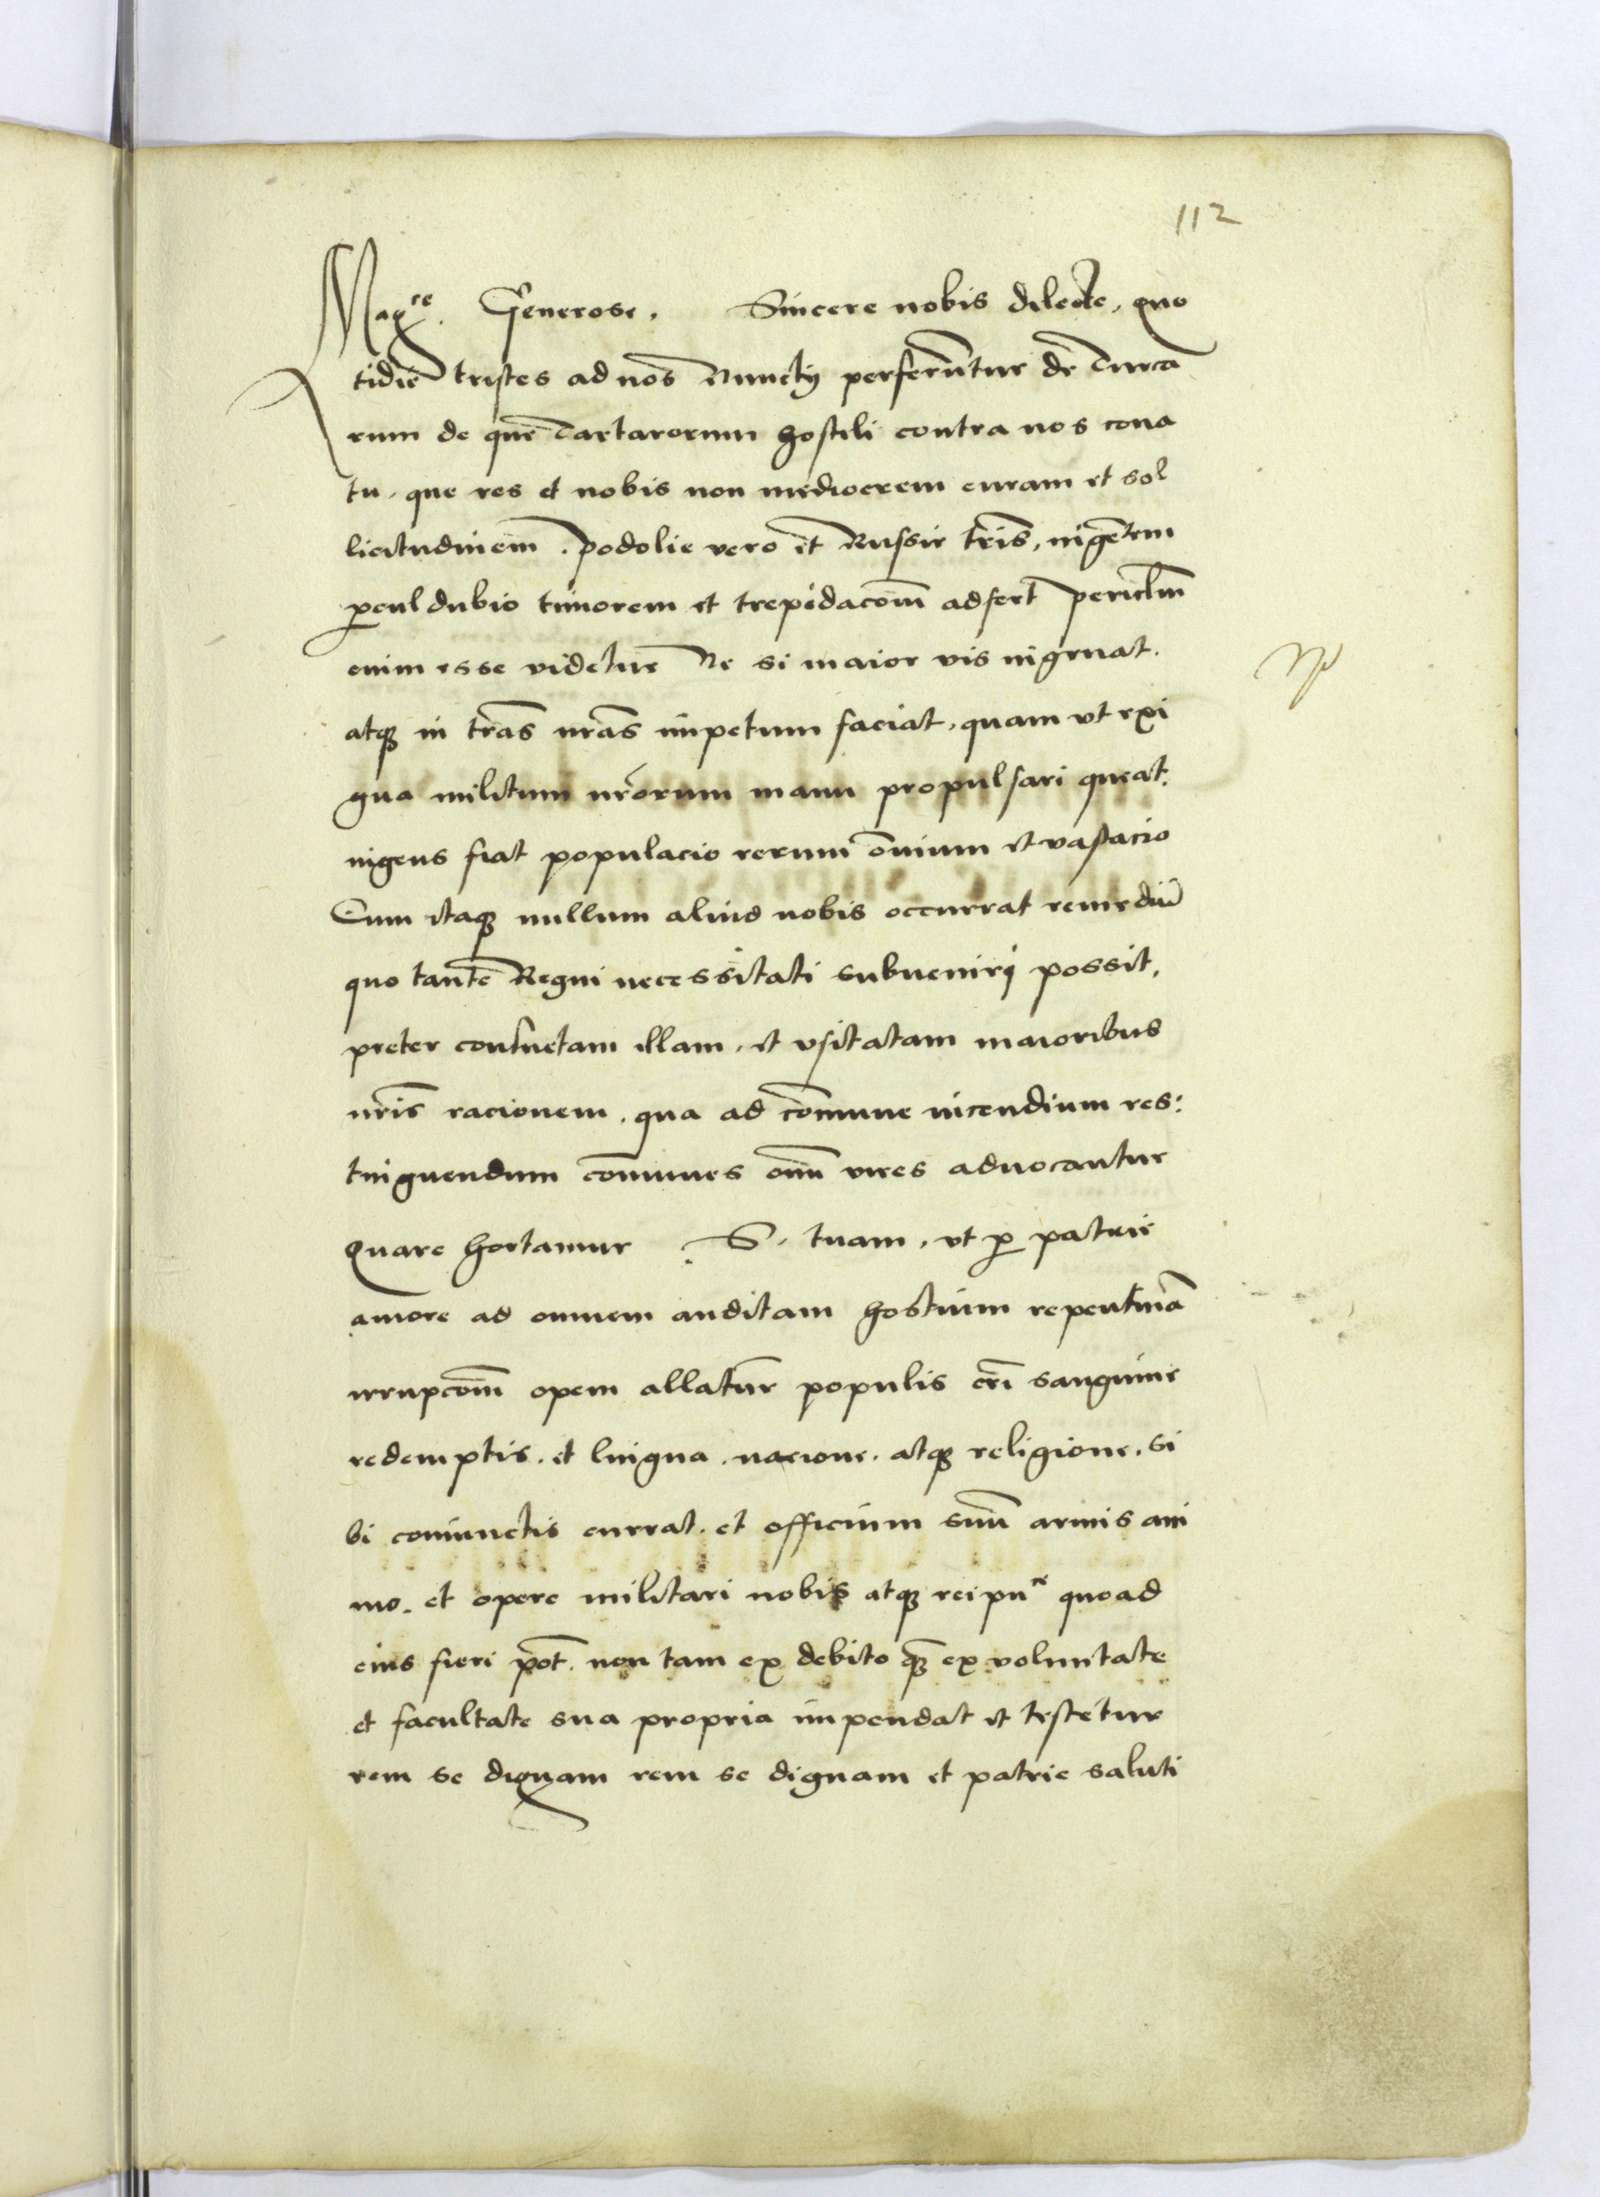 112
Mag.ce Generose. Sincere nobis dilecte, quo
tidie tristes ad nos Nunctij perferuntur de Turca
rum de que Tartarorum hostili contra nos cona
tu. que res et nobis non mediocrem curam et sol
licitudinem. podolie vero et Russie tr̄is, ingentem
ꝓcul dubio timorem et trepidacōm adfert pericl̄m
enim esse videtur Ne si maior vis ingruat.
atqꝫ in tr̄as nr̄as impetum faciat, quam vt exi
gua militum nr̄orum manu propulsari queat.
ingens fiat populacio rerum ōnium et vastacio
Cum itaqꝫ nullum aliud nobis occurrat remediū
quo tante Regni necessitati subueniri possit,
preter consuetam illam, et vsitatam maioribus
nr̄is racionem. qua ad cōmune incendium res:
tinguendum cōmunes oīm vires aduocantur
Quare hortamur S. tuam, vt ꝓ patrie
amore ad omnem auditam hostium repentinā
irrupcōm opem allatum populis cr̄i sanguine
redemptis. et lingua. nacione. atqꝫ religione. si
bi coniunctis currat. et officium suū armis ani
mo. et opere militari nobis atqꝫ reipu.ce quoad
eius fieri pōt. non tam ex debito qꝫ̄ ex voluntate
et facultate sua propria impendat et testetur
rem se dignam rem se dignam et patrie saluti